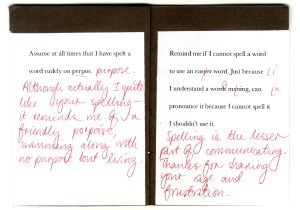 Assume at all times that I have spelt a
word rudely on perpos. purpose.
Although actually I quite
like your spelling -
it reminds me of a
friendly, porpoise,
swimming along with
no purpose but living.
Remind me if I cannot spell a word
to use an word. Just because
I understand a words can
pronounce it because I cannot spell it
I shouldn't use it.
Spelling is the lesser
part of communicating.
Thanks for sharing
your rage and
frustration.